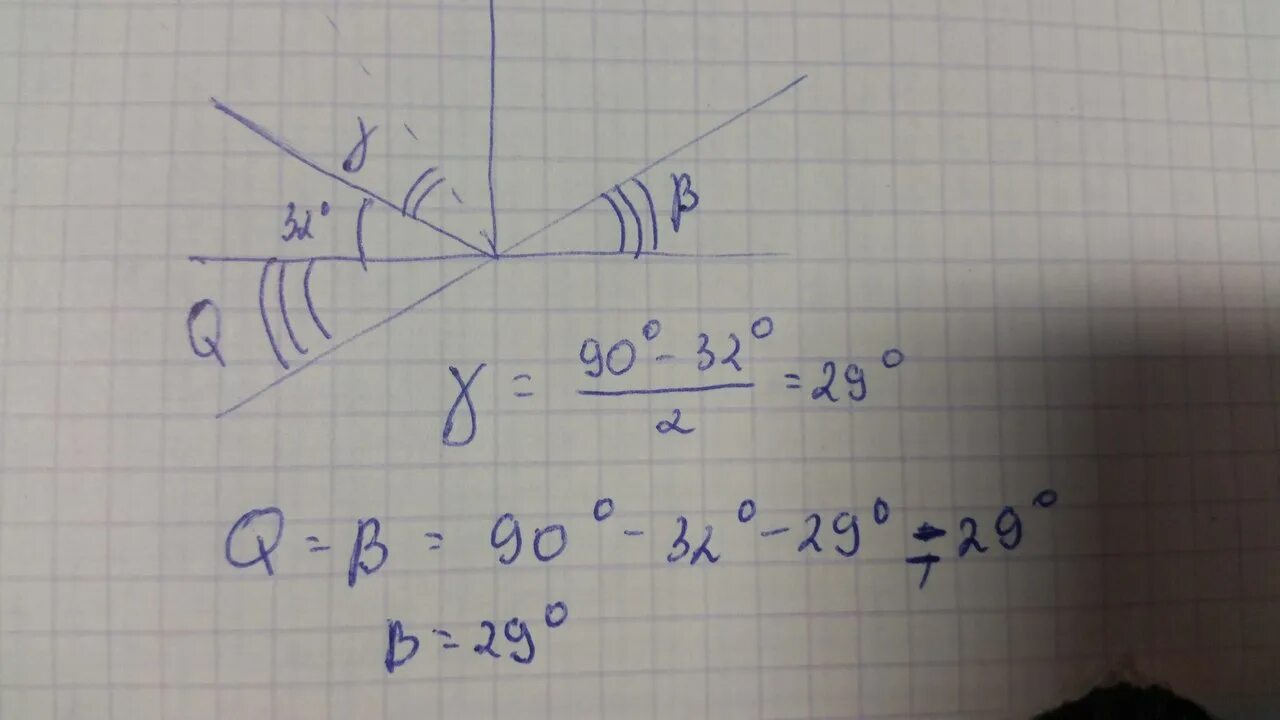 γ
32°
β
Q
γ = (90° - 32°) / 2 = 29°
Q = β = 90° - 32° - 29° = 29°
β = 29°